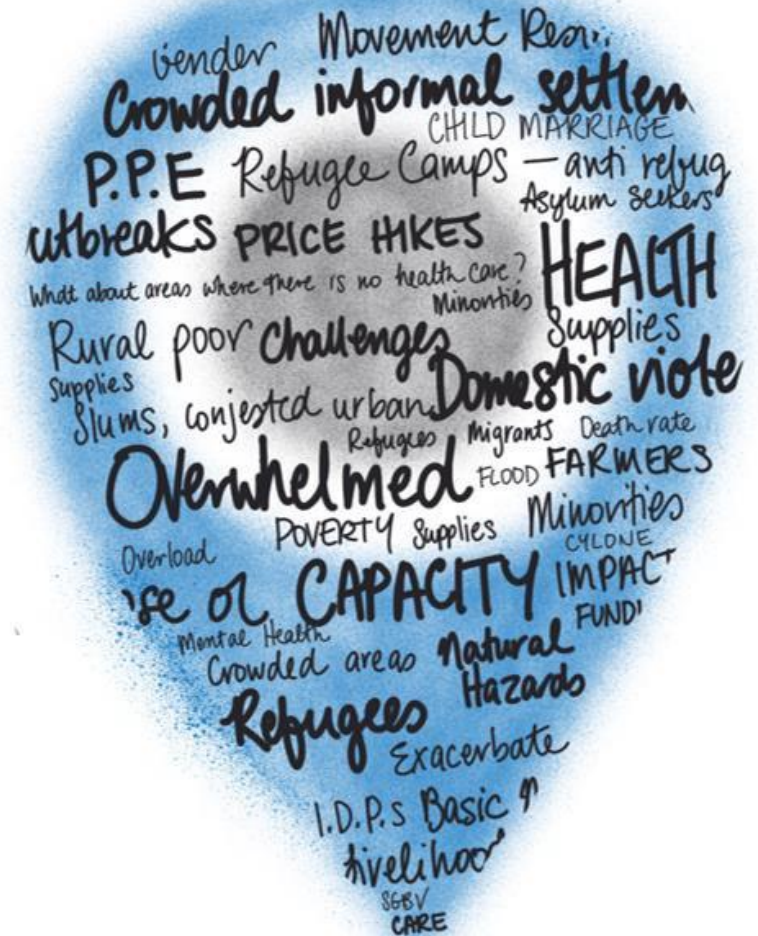 Gender Movement
Crowded informal settlem
CHILD MARRIAGE
P.P.E Refugee Camps – anti refug
Asylum Seekers
utbreaks PRICE HIKES
HEALTH
What about areas where there is no health care?
Minorities
Supplies
Rural poor Challenges
Supplies
Domestic viole
Slums, conjested urban
Refugees Migrants Death rate
Overwhelmed FLOOD FARMERS
POVERTY Supplies Minorities
Overload CYLONE
se of CAPACITY IMPACT
FUNDI
Mental Health
Crowded areas Natural
Hazards
Refugees
Exacerbate
I.D.P.s Basic
livelihoo
SGBV
CARE